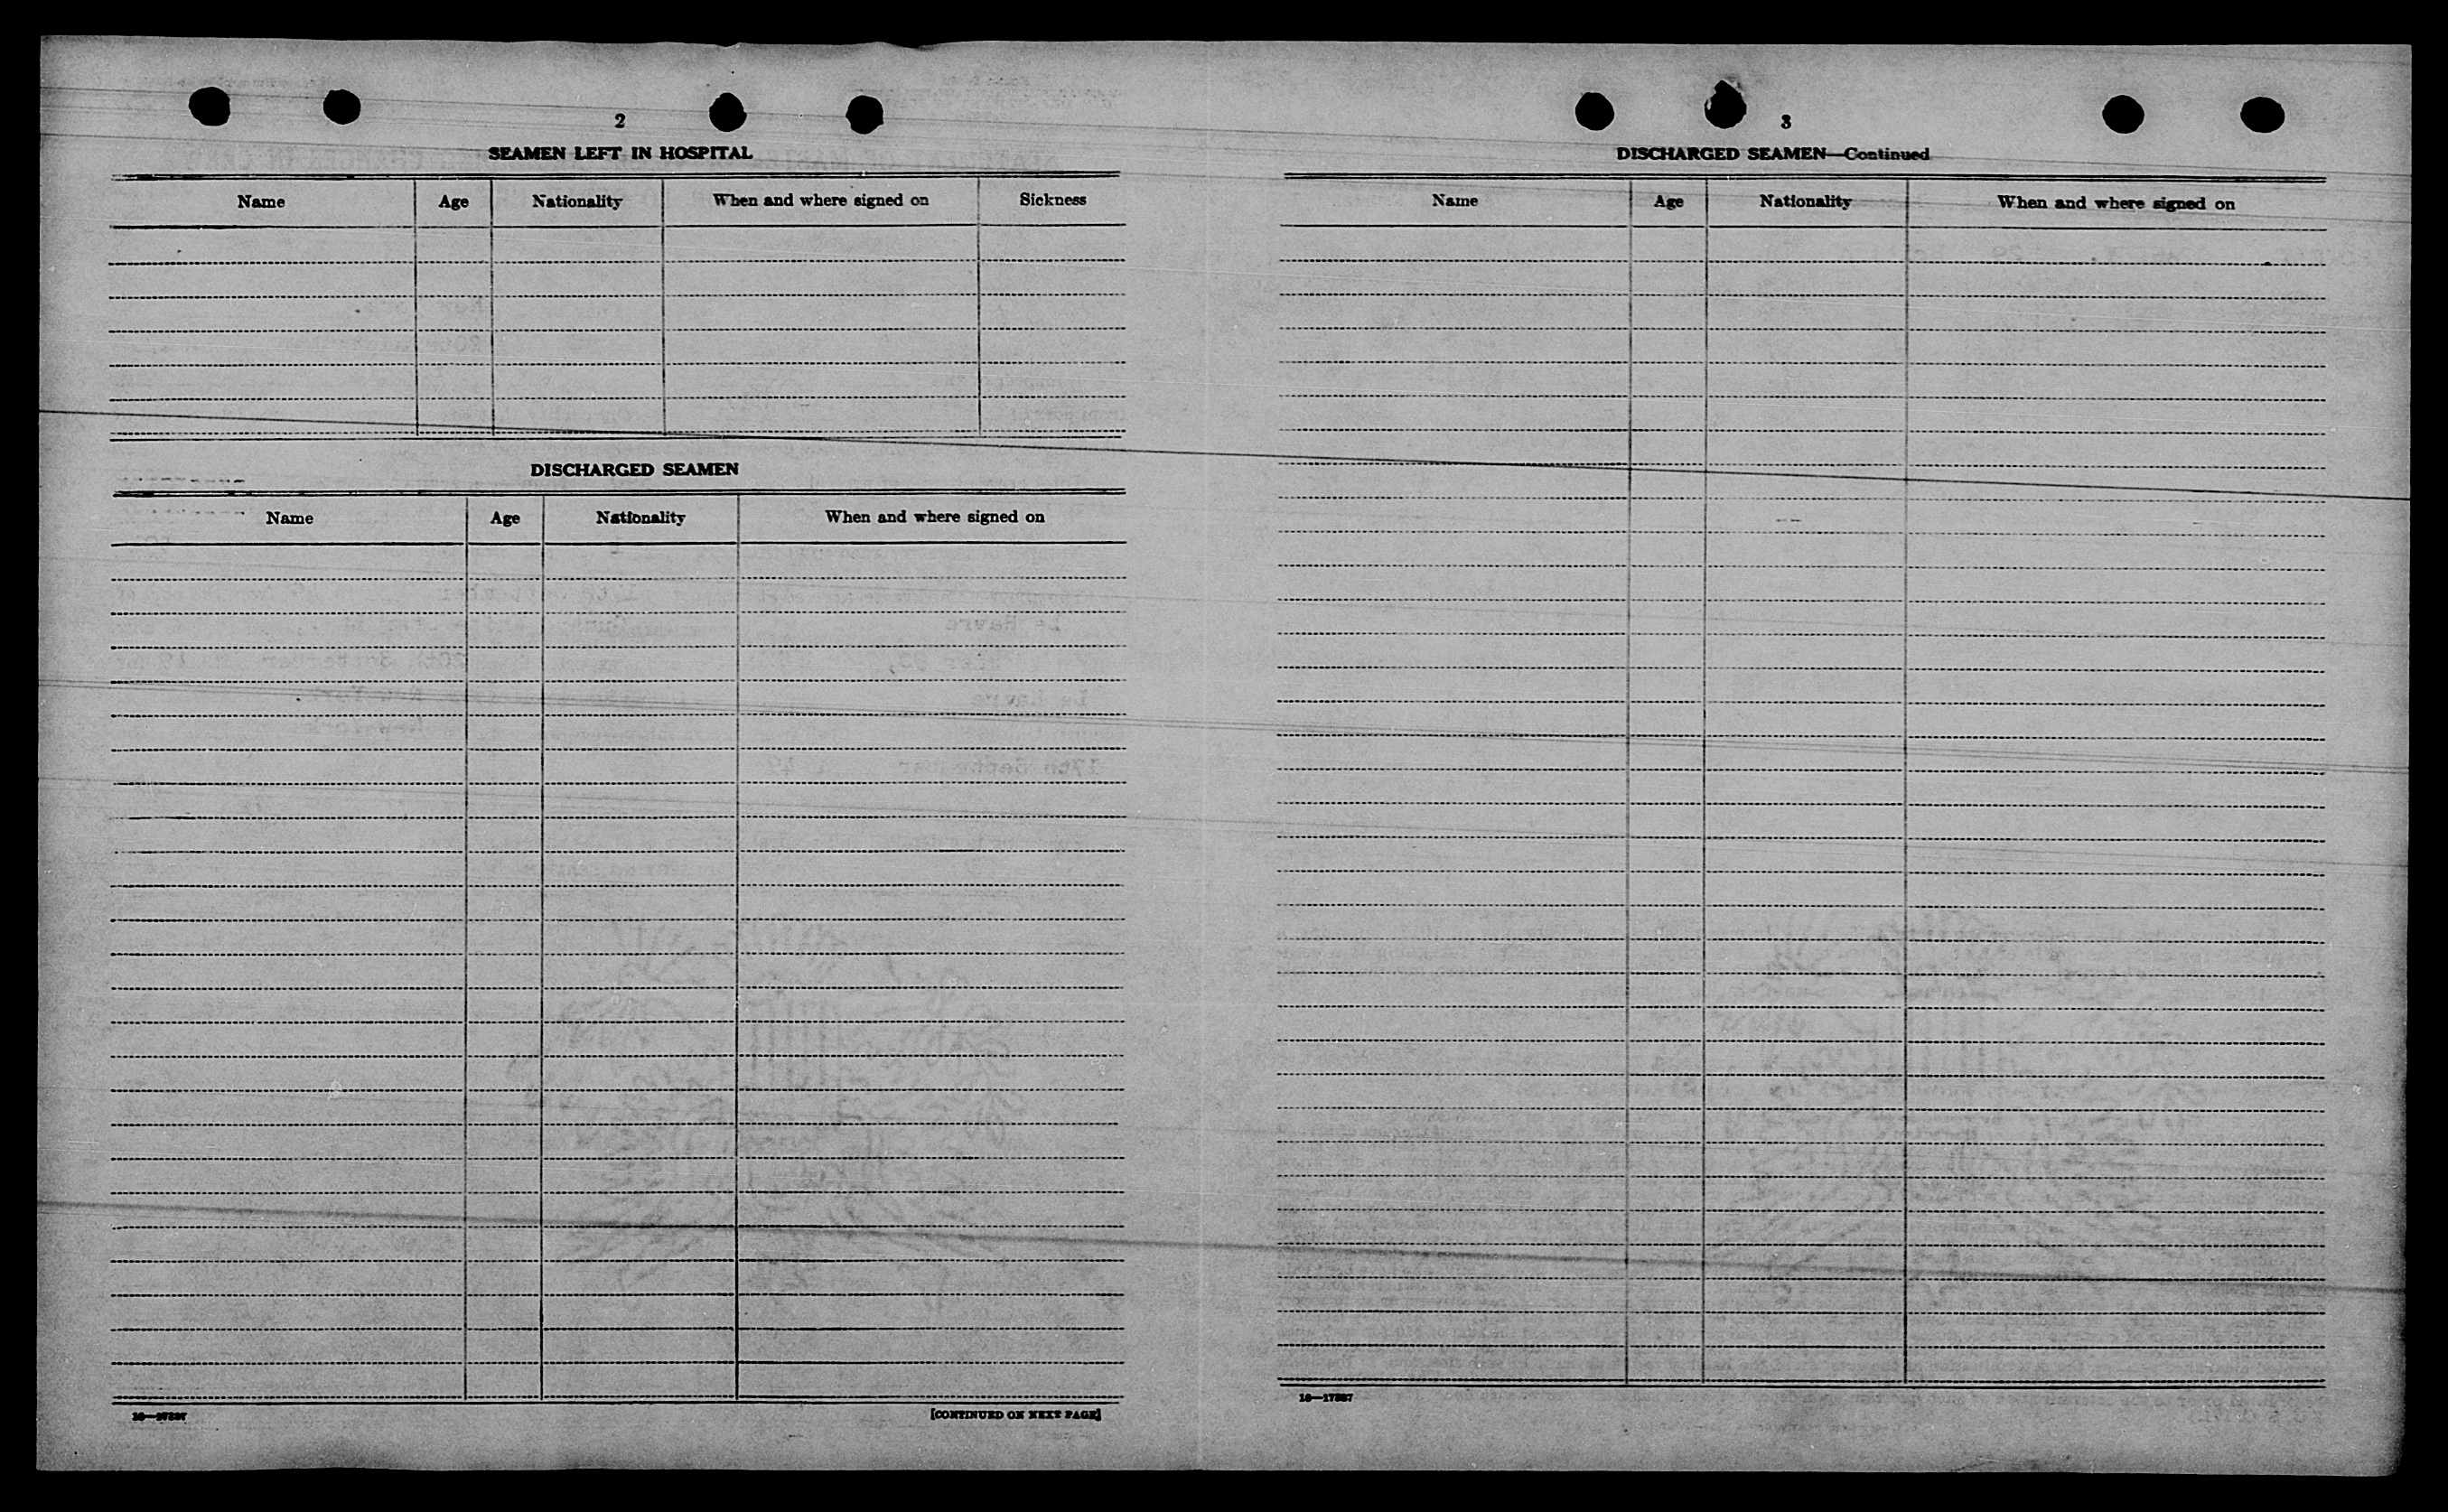 2
SEAMEN LEFT IN HOSPITAL
Name Age Nationality When and where signed on Sickness
DISCHARGED SEAMEN
Name Age Nationality When and where signed on
16—17887
[CONTINUED ON NEXT PAGE]
3
DISCHARGED SEAMEN—Continued
Name Age Nationality When and where signed on
16—17887